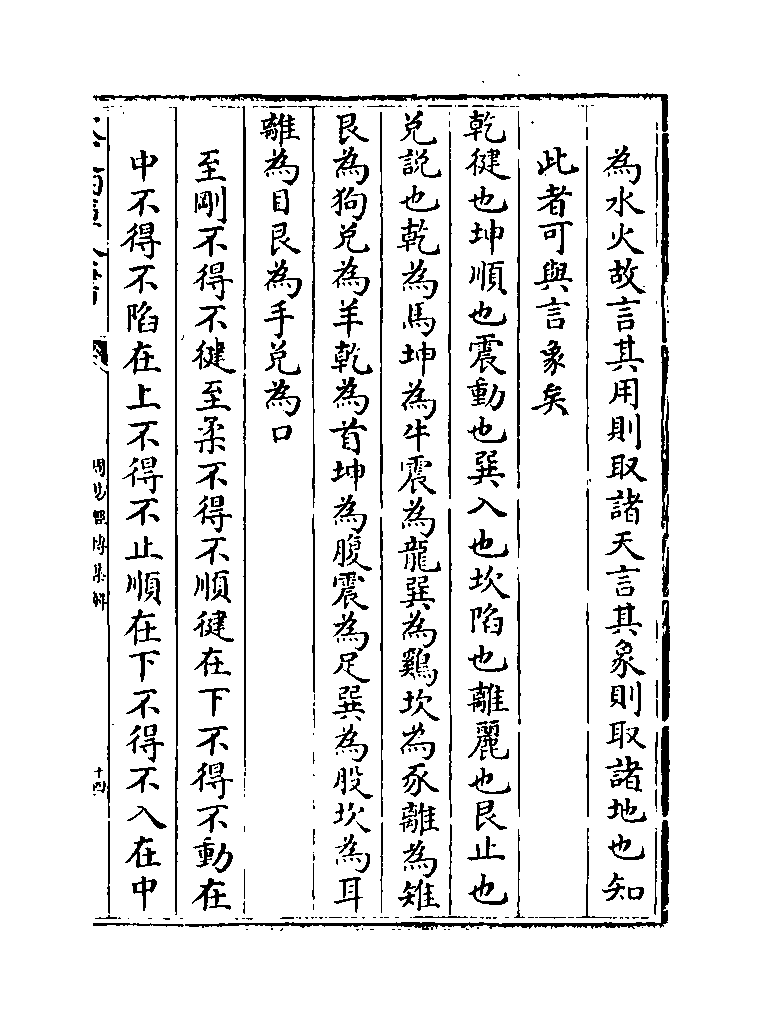 為水火故言其用則取諸天言其象則取諸地也知
此者可與言象矣
乾健也坤順也震動也巽入也坎陷也離麗也艮止也
兌說也乾為馬坤為牛震為龍巽為雞坎為豕離為雉
艮為狗兌為羊乾為首坤為腹震為足巽為股坎為耳
離為目艮為手兌為口
至剛不得不健至柔不得不順健在下不得不動在
中不得不陷在上不得不止順在下不得不入在中
周易經傳集解
十四